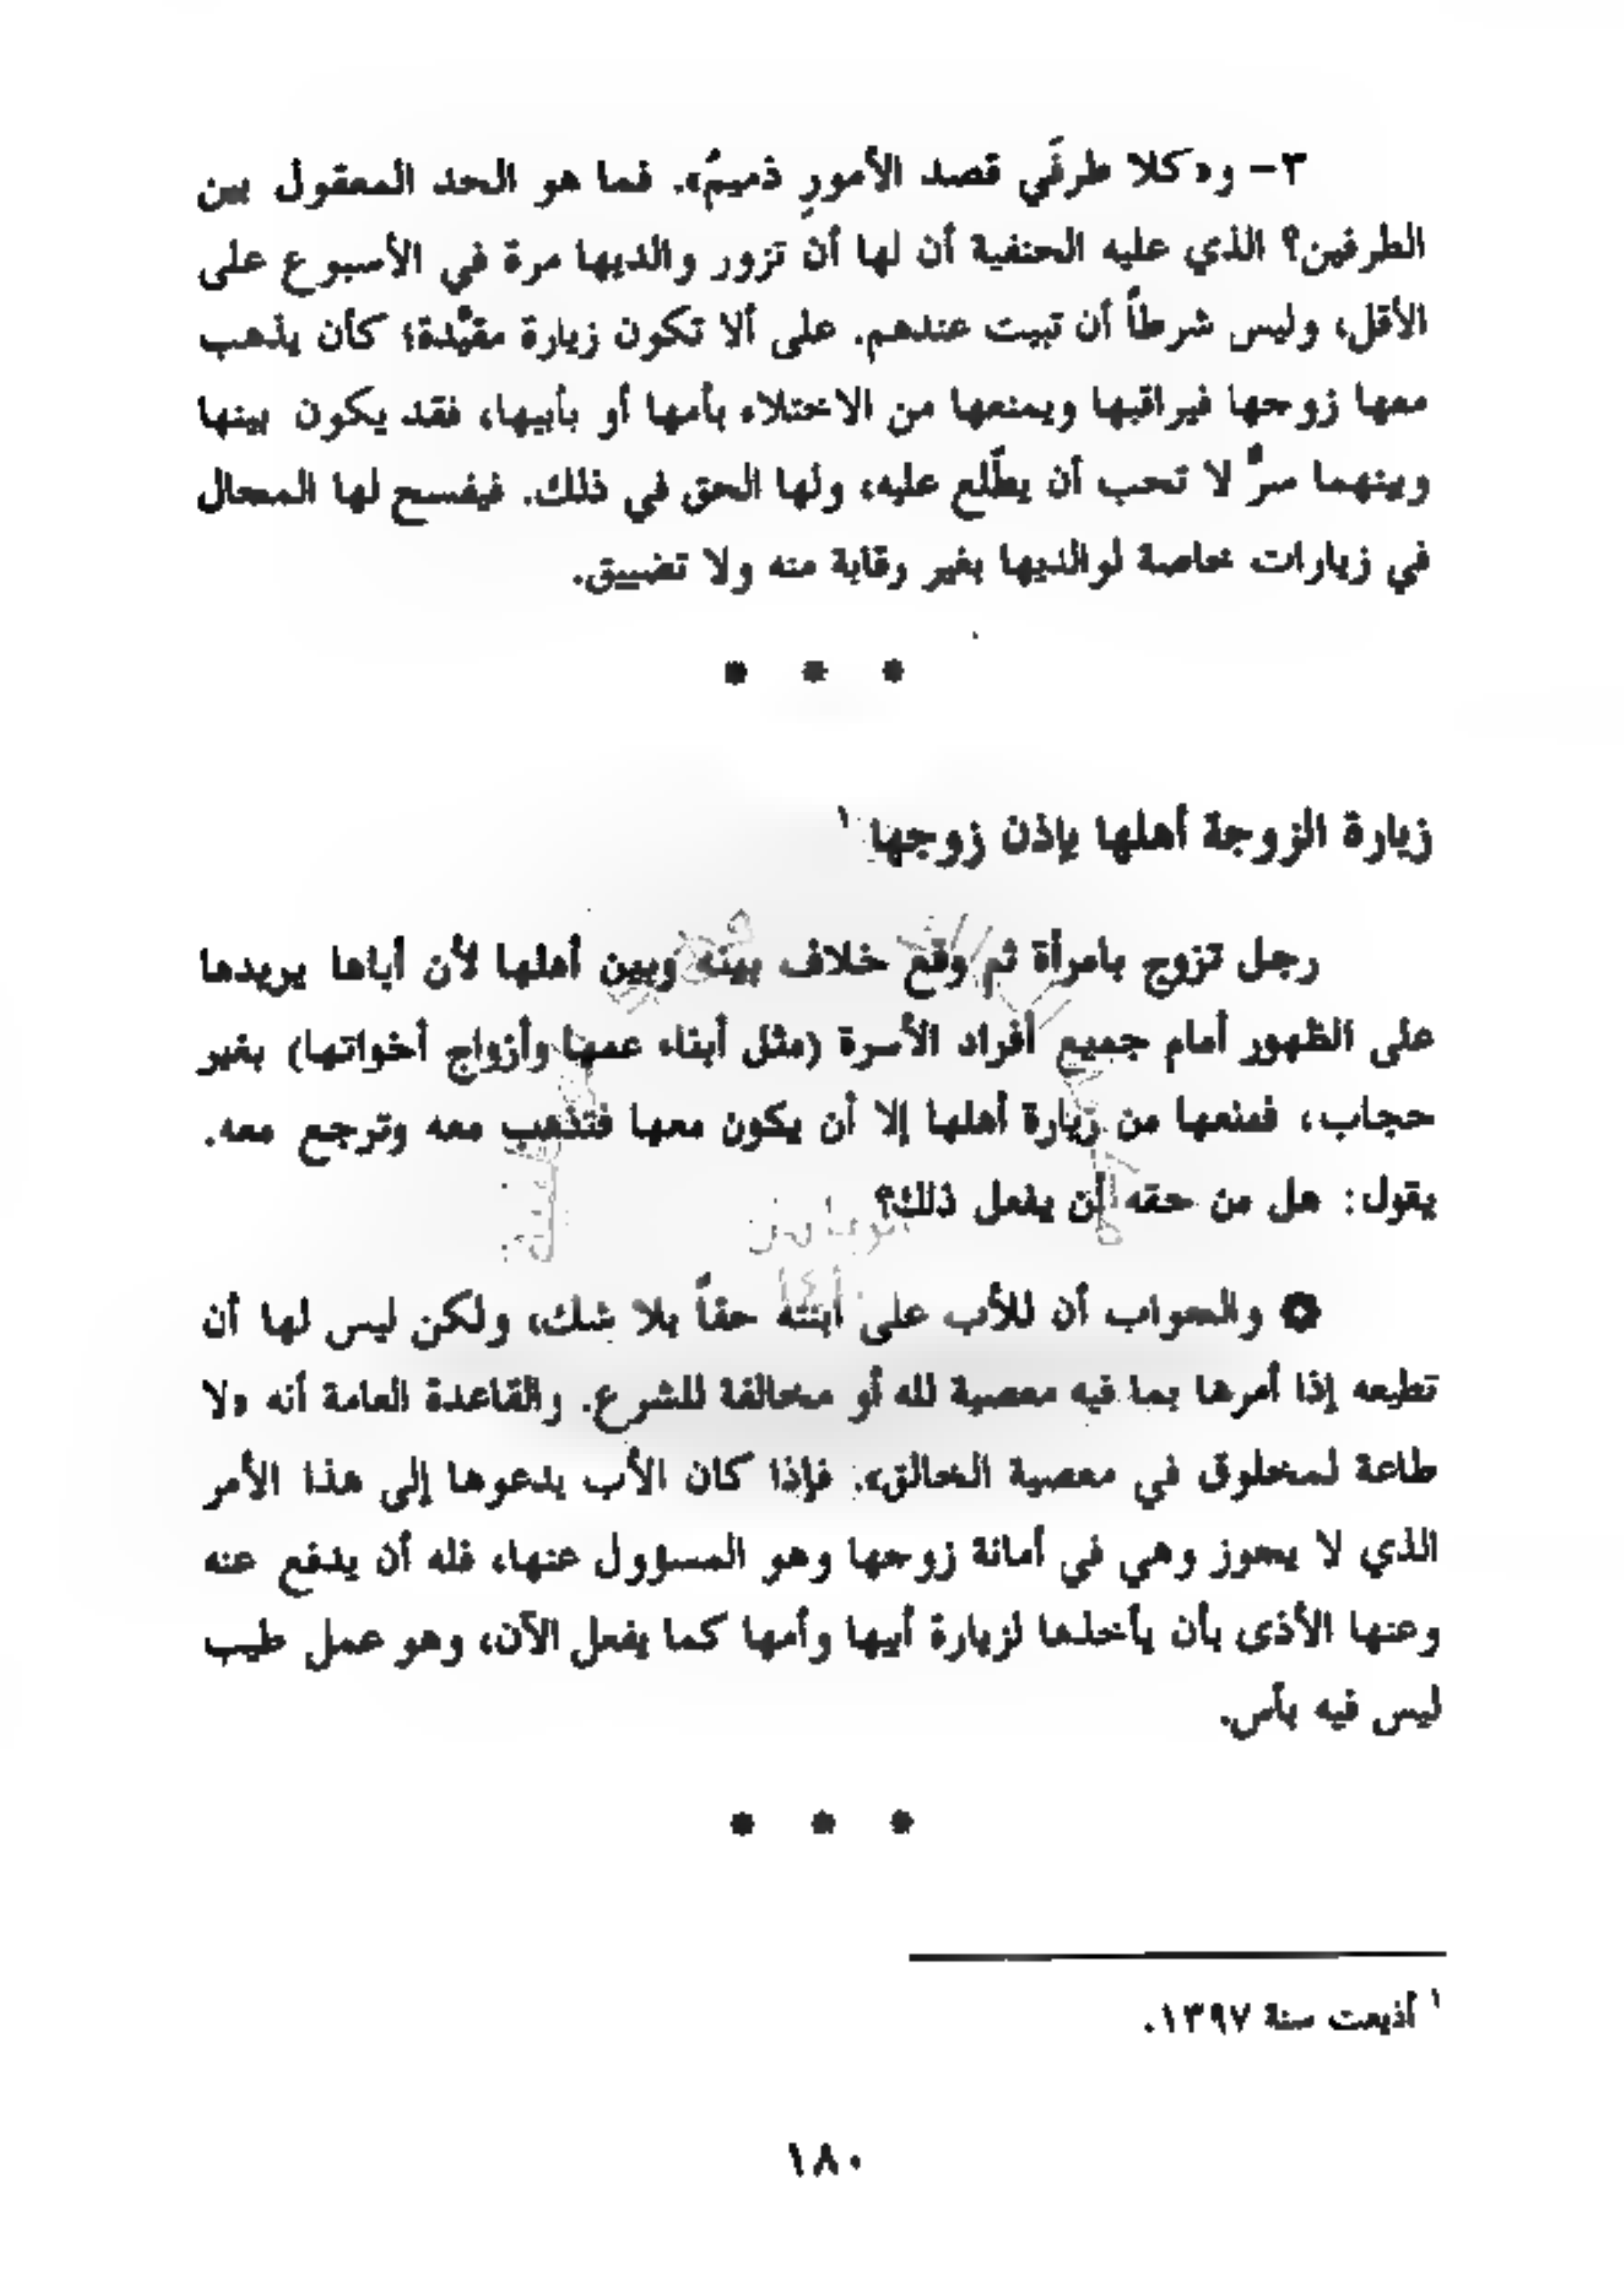 ٣- و«كلا طرفَي قصد الأمورِ ذميمُ». فما هو الحد المعقول بين
الطرفين؟ الذي عليه الحنفية أن لها أن تزور والديها مرة في الأسبوع على
الأقل، وليس شرطاً أن تبيت عندهم. على ألا تكون زيارة مقيَّدة؛ كأن يذهب
معها زوجها فيراقبها ويمنعها من الاختلاء بأمها أو بأبيها، فقد يكون بينها
وبينهما سرٌّ لا تحب أن يطّلع عليه، ولها الحق في ذلك. فيفسح لها المجال
في زيارات خاصة لوالديها بغير رقابة منه ولا تضييق.
* * *
زيارة الزوجة أهلها بإذن زوجها ١
رجل تزوج بامرأة ثم وقع خلاف بينه وبين أهلها لأن أباها يريدها
على الظهور أمام جميع أفراد الأسرة (مثل أبناء عمها وأزواج أخواتها) بغير
حجاب، فمنعها من زيارة أهلها إلا أن يكون معها فتذهب معه وترجع معه.
يقول: هل من حقه أن يفعل ذلك؟
والجواب أن للأب على ابنته حقاً بلا شك، ولكن ليس لها أن
تطيعه إذا أمرها بما فيه معصية لله أو مخالفة للشرع. والقاعدة العامة أنه «لا
طاعة لمخلوق في معصية الخالق». فإذا كان الأب يدعوها إلى هذا الأمر
الذي لا يجوز وهي في أمانة زوجها وهو المسؤول عنها، فله أن يدفع عنه
وعنها الأذى بأن يأخذها لزيارة أبيها وأمها كما يفعل الآن، وهو عمل طيب
ليس فيه بأس.
* * *
١ أذيعت سنة ١٣٩٧.
١٨٠